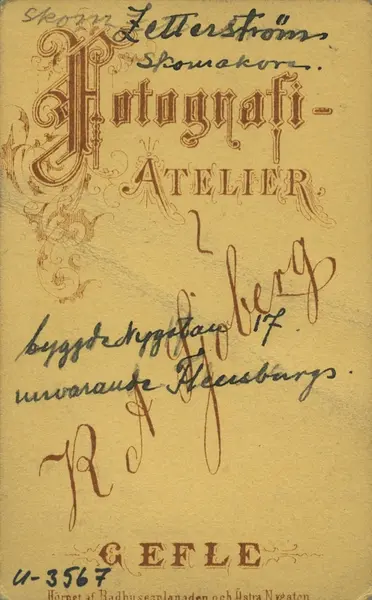 Skom Zetterström
Skomakare.
Fotografi-
ATELIER
R A Sjöberg
byggde Nygatan 17
nuvarande Flensburgs.
GEFLE
U-3567
Hörnet af Rådhusesplanaden och Östra Nygatan